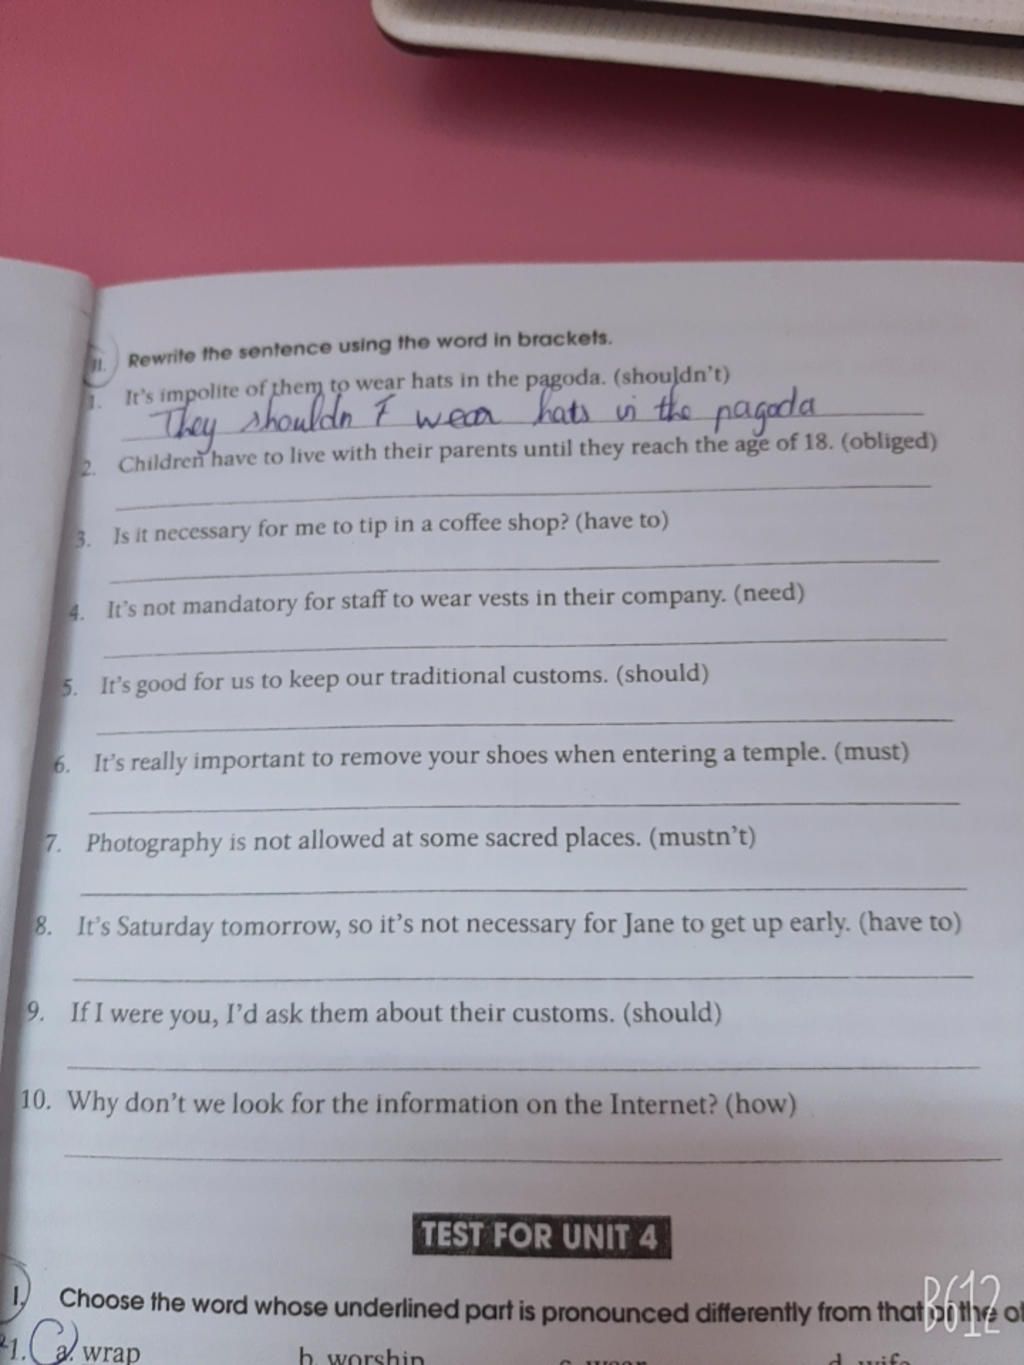 II. Rewrite the sentence using the word in brackets.
1. It's impolite of them to wear hats in the pagoda. (shouldn't)
They shouldn't wear hats in the pagoda
2. Children have to live with their parents until they reach the age of 18. (obliged)
3. Is it necessary for me to tip in a coffee shop? (have to)
4. It's not mandatory for staff to wear vests in their company. (need)
5. It's good for us to keep our traditional customs. (should)
6. It's really important to remove your shoes when entering a temple. (must)
7. Photography is not allowed at some sacred places. (mustn't)
8. It's Saturday tomorrow, so it's not necessary for Jane to get up early. (have to)
9. If I were you, I'd ask them about their customs. (should)
10. Why don't we look for the information on the Internet? (how)
TEST FOR UNIT 4
I. Choose the word whose underlined part is pronounced differently from that of the
B612
1. a. wrap b. worship c. wear d. wife